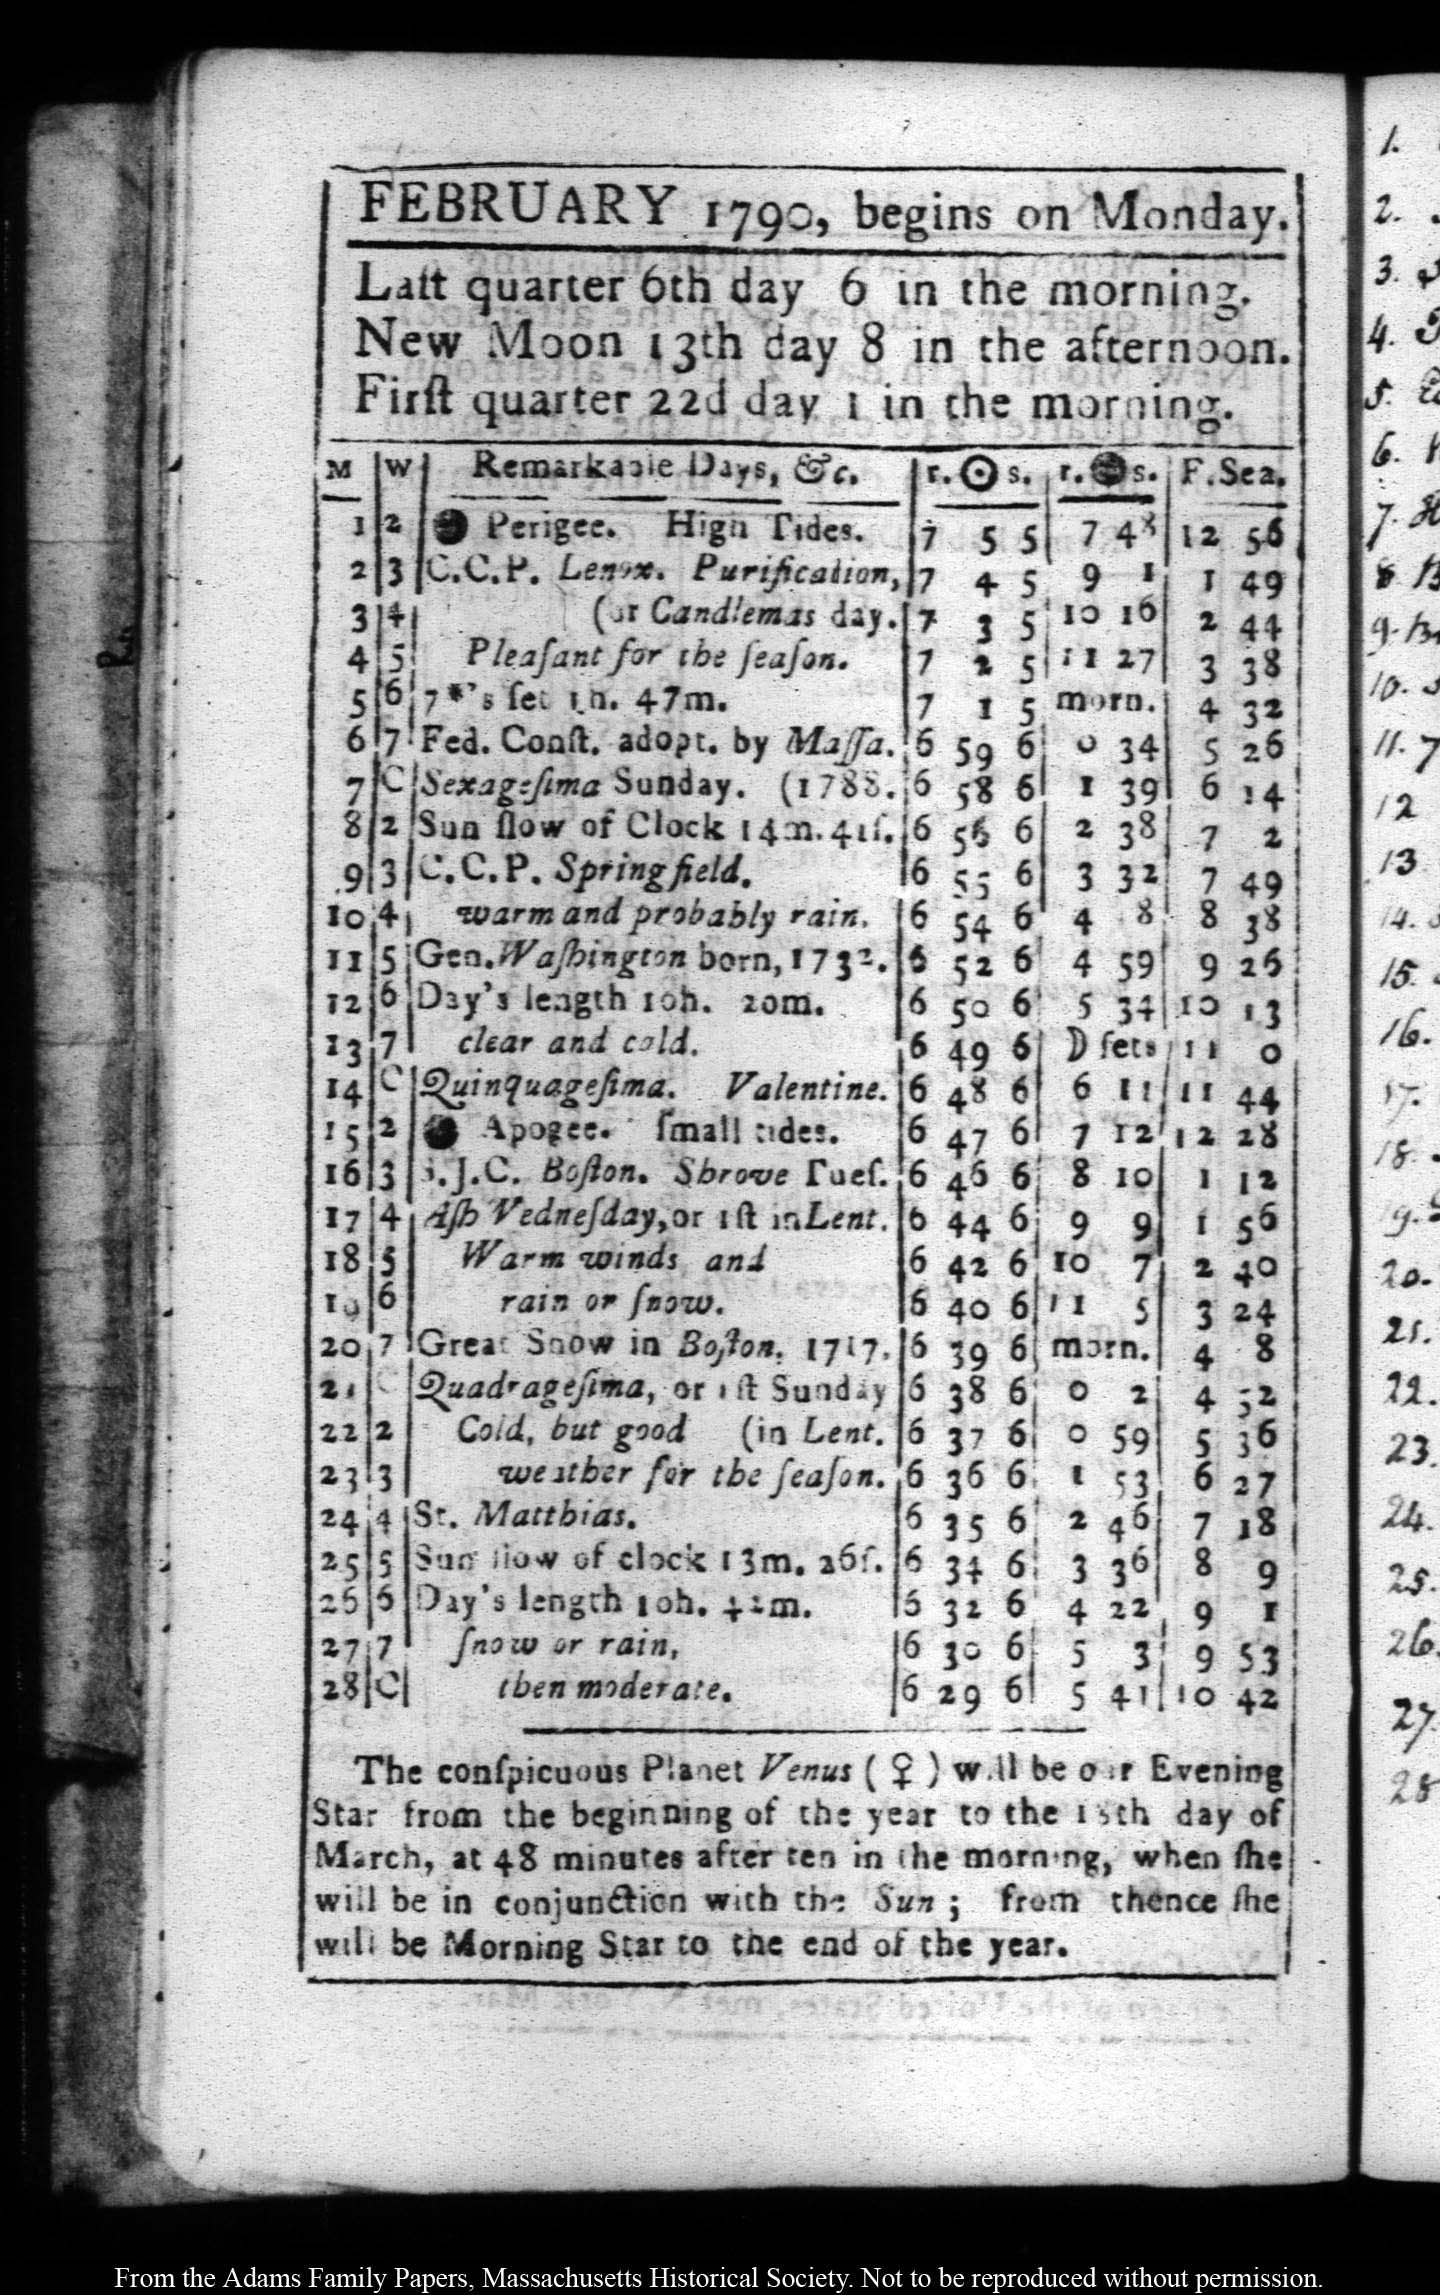 FEBRUARY 1790, begins on Monday.
Laſt quarter 6th day 6 in the morning.
New Moon 13th day 8 in the afternoon.
Firſt quarter 22d day 1 in the morning.
M W Remarkable Days, &c. r. ☉ s. r. ● s. F. Sea.
1 2 ● Perigee. High Tides. 7 5 5 7 48 12 56
2 3 C.C.P. Lenox. Purification, 7 4 5 9 1 1 49
3 4 (or Candlemas day. 7 3 5 10 16 2 44
4 5 Pleaſant for the ſeaſon. 7 2 5 11 27 3 38
5 6 7*'s ſet 1h. 47m. 7 1 5 morn. 4 32
6 7 Fed. Conſt. adopt. by Maſſa. 6 59 6 0 34 5 26
7 C Sexageſima Sunday. (1788. 6 58 6 1 39 6 14
8 2 Sun ſlow of Clock 14m. 41ſ. 6 56 6 2 38 7 2
9 3 C.C.P. Springfield. 6 55 6 3 32 7 49
10 4 warm and probably rain. 6 54 6 4 8 8 38
11 5 Gen. Waſhington born, 1732. 6 52 6 4 59 9 26
12 6 Day's length 10h. 20m. 6 50 6 5 34 10 13
13 7 clear and cold. 6 49 6 ☽ ſets 11 0
14 C Quinquageſima. Valentine. 6 48 6 6 11 11 44
15 2 ● Apogee. ſmall tides. 6 47 6 7 12 12 28
16 3 S.J.C. Boſton. Shrove Tueſ. 6 46 6 8 10 1 12
17 4 Aſh Wedneſday, or 1ſt in Lent. 6 44 6 9 9 1 56
18 5 Warm winds and 6 42 6 10 7 2 40
19 6 rain or ſnow. 6 40 6 11 5 3 24
20 7 Great Snow in Boſton. 1717. 6 39 6 morn. 4 8
21 C Quadrageſima, or 1ſt Sunday 6 38 6 0 2 4 52
22 2 Cold, but good (in Lent. 6 37 6 0 59 5 36
23 3 weather for the ſeaſon. 6 36 6 1 53 6 27
24 4 St. Matthias. 6 35 6 2 46 7 18
25 5 Sun ſlow of clock 13m. 26ſ. 6 34 6 3 36 8 9
26 6 Day's length 10h. 42m. 6 32 6 4 22 9 1
27 7 ſnow or rain, 6 30 6 5 3 9 53
28 C then moderate. 6 29 6 5 41 10 42
The conſpicuous Planet Venus (♀) will be our Evening
Star from the beginning of the year to the day of
March, at 48 minutes after ten in the morning, when ſhe
will be in conjunction with the Sun; from thence ſhe
will be Morning Star to the end of the year.
1.
2.
3.
4.
5.
6.
7.
8
9.
10.
11.
12
13
14.
15.
16.
17.
18.
19.
20.
21.
22.
23.
24.
25.
26.
27.
28
From the Adams Family Papers, Massachusetts Historical Society. Not to be reproduced without permission.